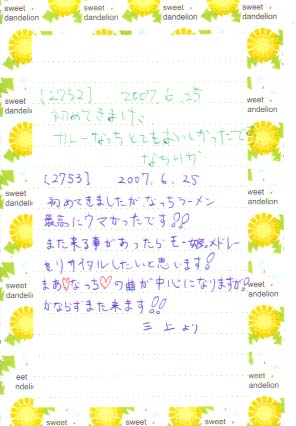 sweet dandelion sweet dandelion sweet dandelion
[2752] 2007.6.25
初めてきまけど、
カレーなっちとてもおいしかったです
なちりか
[2753] 2007.6.25
初めてきましたが、なっちラーメン
最高にウマかったです!!
また来る事があったら モー娘。メドレー
をリサイタルしたいと思います!
まあ♡なっち♡の曲が中心になりますが!
かならずまた来ます!!
三上より
sweet dandelion
sweet dandelion